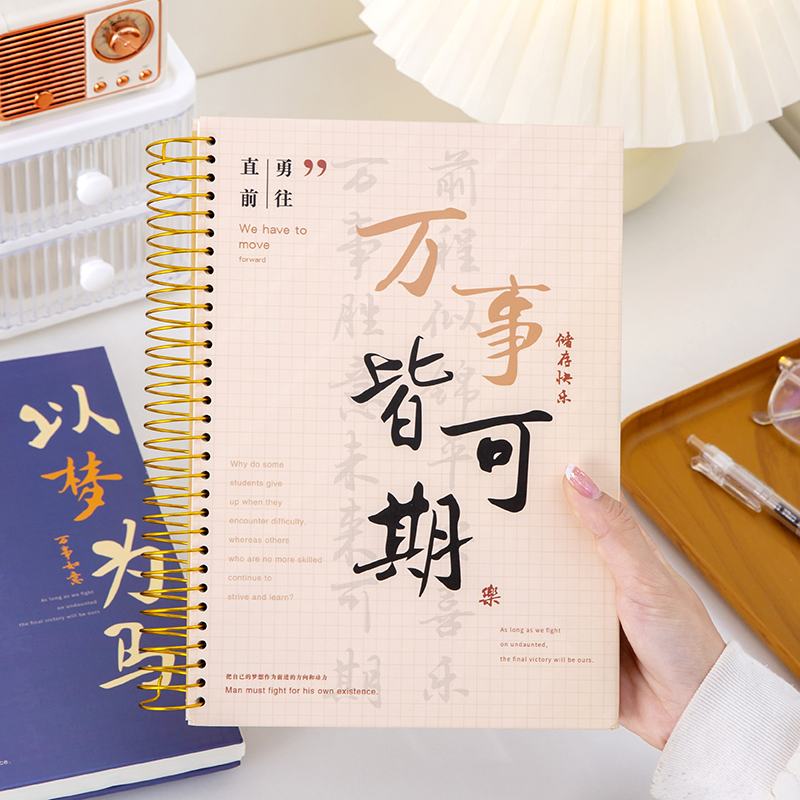 直勇
前往
We have to
move
forward
万事皆可期
储存快乐
万事胜意未来可期
前程似锦平安喜乐
Why do some
students give
up when they
encounter difficulty.
whereas others
who are no more skilled
continue to
strive and learn?
樂
As long as we fight
on undaunted,
the final victory will be ours.
把自己的梦想作为前进的方向和动力
Man must fight for his own existence.
以梦为马
万事如意
As long as we fight
on undaunted,
the final victory will be ours.